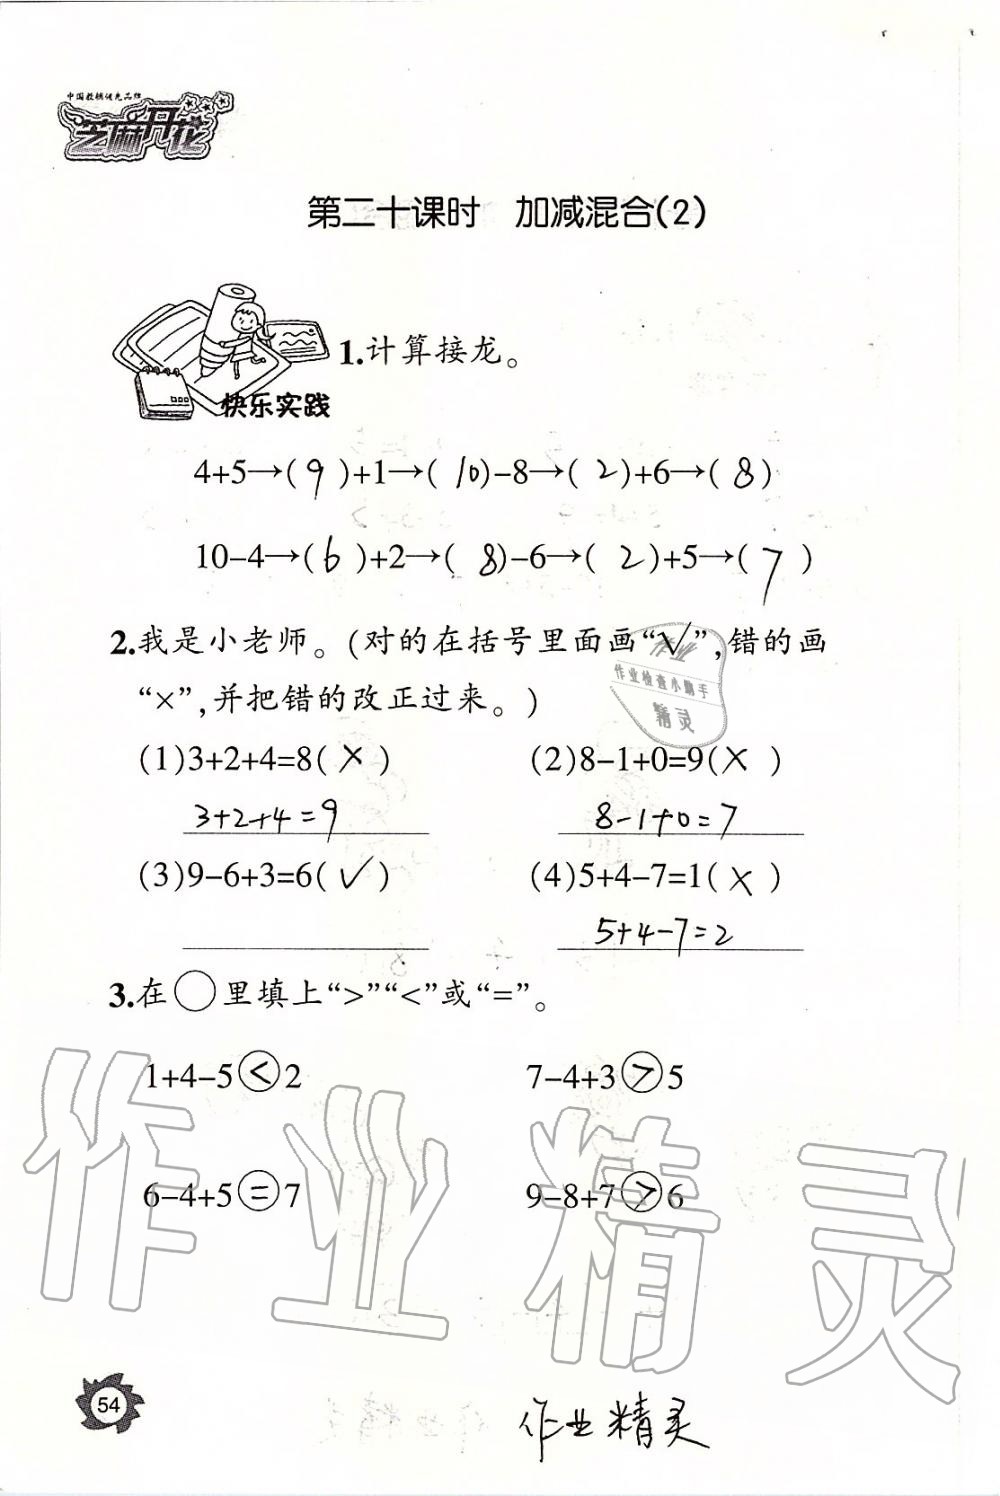 中国教辅领先品牌
芝麻开花
第二十课时 加减混合(2)
1.计算接龙。
快乐实践
4+5→(9)+1→(10)-8→(2)+6→(8)
10-4→(6)+2→(8)-6→(2)+5→(7)
2.我是小老师。(对的在括号里面画“√”,错的画
“×”,并把错的改正过来。)
作业
作业检查小助手
精灵
(1)3+2+4=8(×) (2)8-1+0=9(×)
3+2+4=9 8-1+0=7
(3)9-6+3=6(√) (4)5+4-7=1(×)
5+4-7=2
3.在○里填上“>”“<”或“=”。
1+4-5<2 7-4+3>5
6-4+5=7 9-8+7>6
作业精灵
54
作业精灵